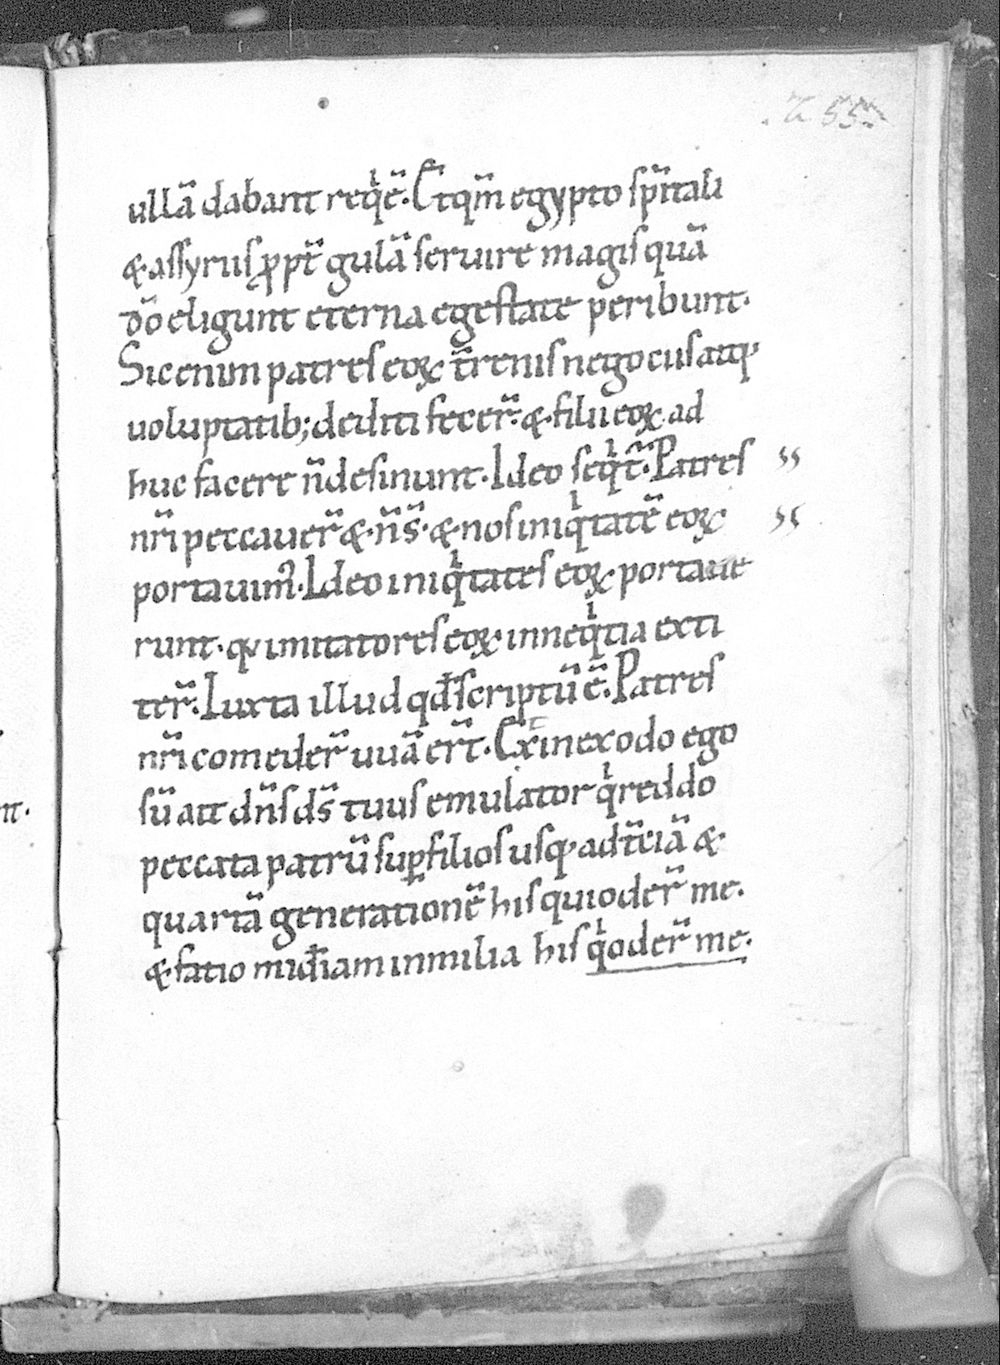 ullã dabant reqͥẽ. Et qm̃ egypto sp̃itali
& assyrus ꝓpt̃ gulã seruire magis quã
dõ eligunt eterna egestate peribunt.
Sic enim patres eoꝝ t̃renis negocus atq;
uoluptatib; dediti fecer̃. & filii eoꝝ ad
huc facere ñ desinunt. Ideo seqͥt̃. Patres
nr̃i peccauer̃ & ñ s̃. & nos iniqͥtatẽ eoꝝ
portauim᾽. Ideo iniqͥtates eoꝝ portaue
runt. qͥ imitatores eoꝝ in neqͥtia exti
ter̃. Iuxta illud qđ scriptũ ẽ. Patres
nr̃i comeder̃ uuã ercr̃t. Et in exodo ego
sũ ait dñs ds̃ tuus emulator qͥ reddo
peccata patrũ suꝑ filios usq; ad t̃ciã &
quartã generationẽ his qui oder̃ me.
& fatio mi͠diam in milia his qͥ oder̃ me.